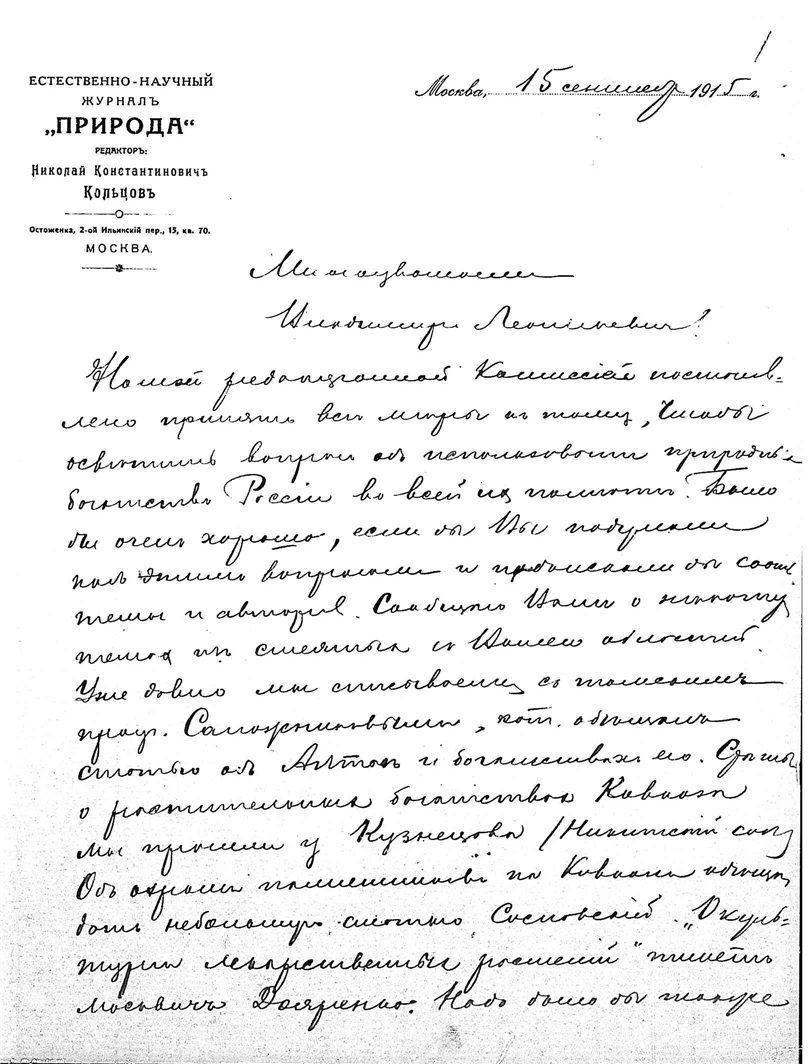 /
ЕСТЕСТВЕННО-НАУЧНЫЙ
ЖУРНАЛЪ
„ПРИРОДА“
РЕДАКТОРЪ:
Николай Константиновичъ
Кольцовъ
Остоженка, 2-ой Ильинскій пер., 15, кв. 70.
МОСКВА.
Москва, 15 сентября 1915 г.
Многоуважаемый
Владимиръ Леонтьевичъ!
Нашей редакціонной Комиссіей постанов-
лено принять всѣ мѣры къ тому, чтобы
освѣтить вопросъ объ использованіи природн.
богатствъ Россіи во всей ихъ полнотѣ. Было
бы очень хорошо, если бы Вы подумали
надъ этими вопросами и подыскали бы соотв.
темы и авторовъ. Сообщаю Вамъ о
темахъ изъ смежныхъ съ Вашей областей.
Уже давно мы списываемся съ томскимъ
проф. Сапожниковымъ, кот. обѣщалъ
статью объ Алтаѣ и богатствахъ его. Статью
о растительныхъ богатствахъ Кавказа
мы просили у Кузнецова /Никитскій садъ/
Объ охранѣ на Кавказѣ обѣщ.
дать небольшую статью Сосновскій. „О куль-
турѣ лекарственныхъ растеній“ пишетъ
москвичъ Дояренко. Надо было бы также